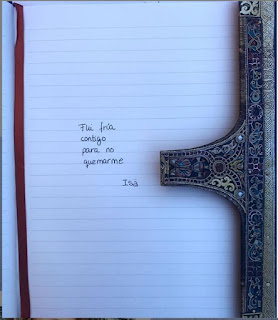 Fui fría
contigo
para no
quemarme
Isa